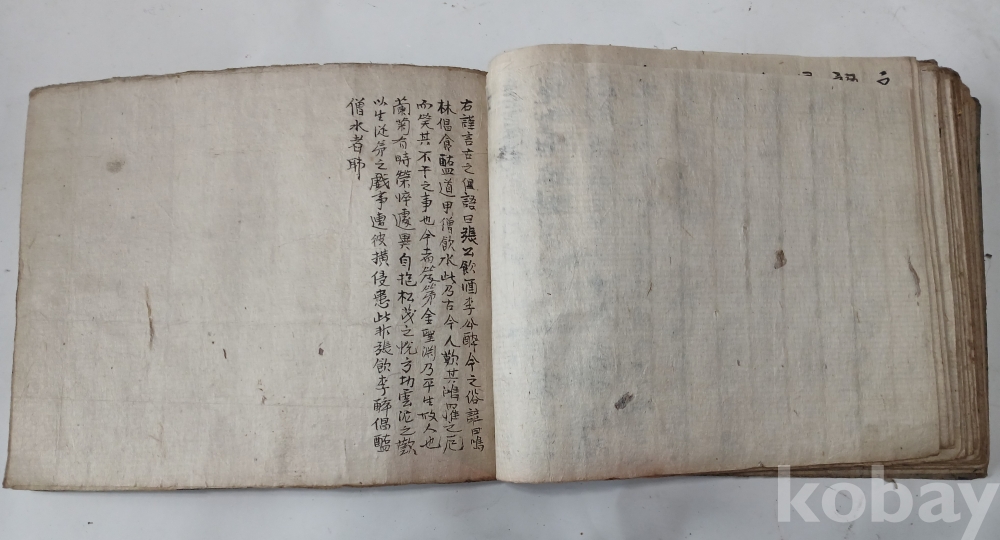 右謹言古之俚語曰張公飲酒李公醉今之俗諺曰鳴
林倡食醯道甲僧飲水此乃古今人歎其鴻罹之厄
而笑其不干之事也今者 弟金聖淵乃平生故人也
蘭菊有時榮悴處異自抱松茂之悅方切雲泥之歎
以生從弟之戲事遭彼橫侵患此非張飲李醉倡醯
僧水者耶
kobay